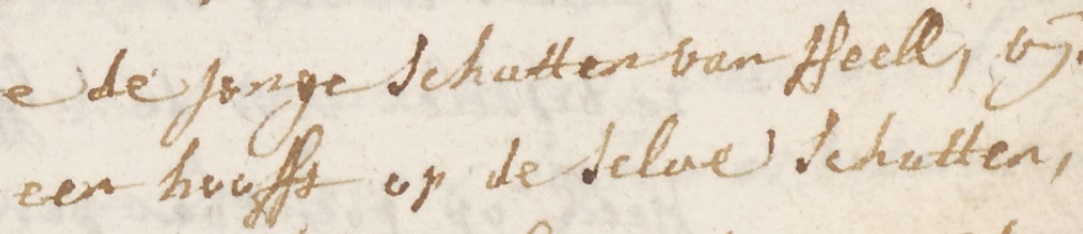 e de jonge schutten van Heell, vÿ
een hoofft op de selve schutten,